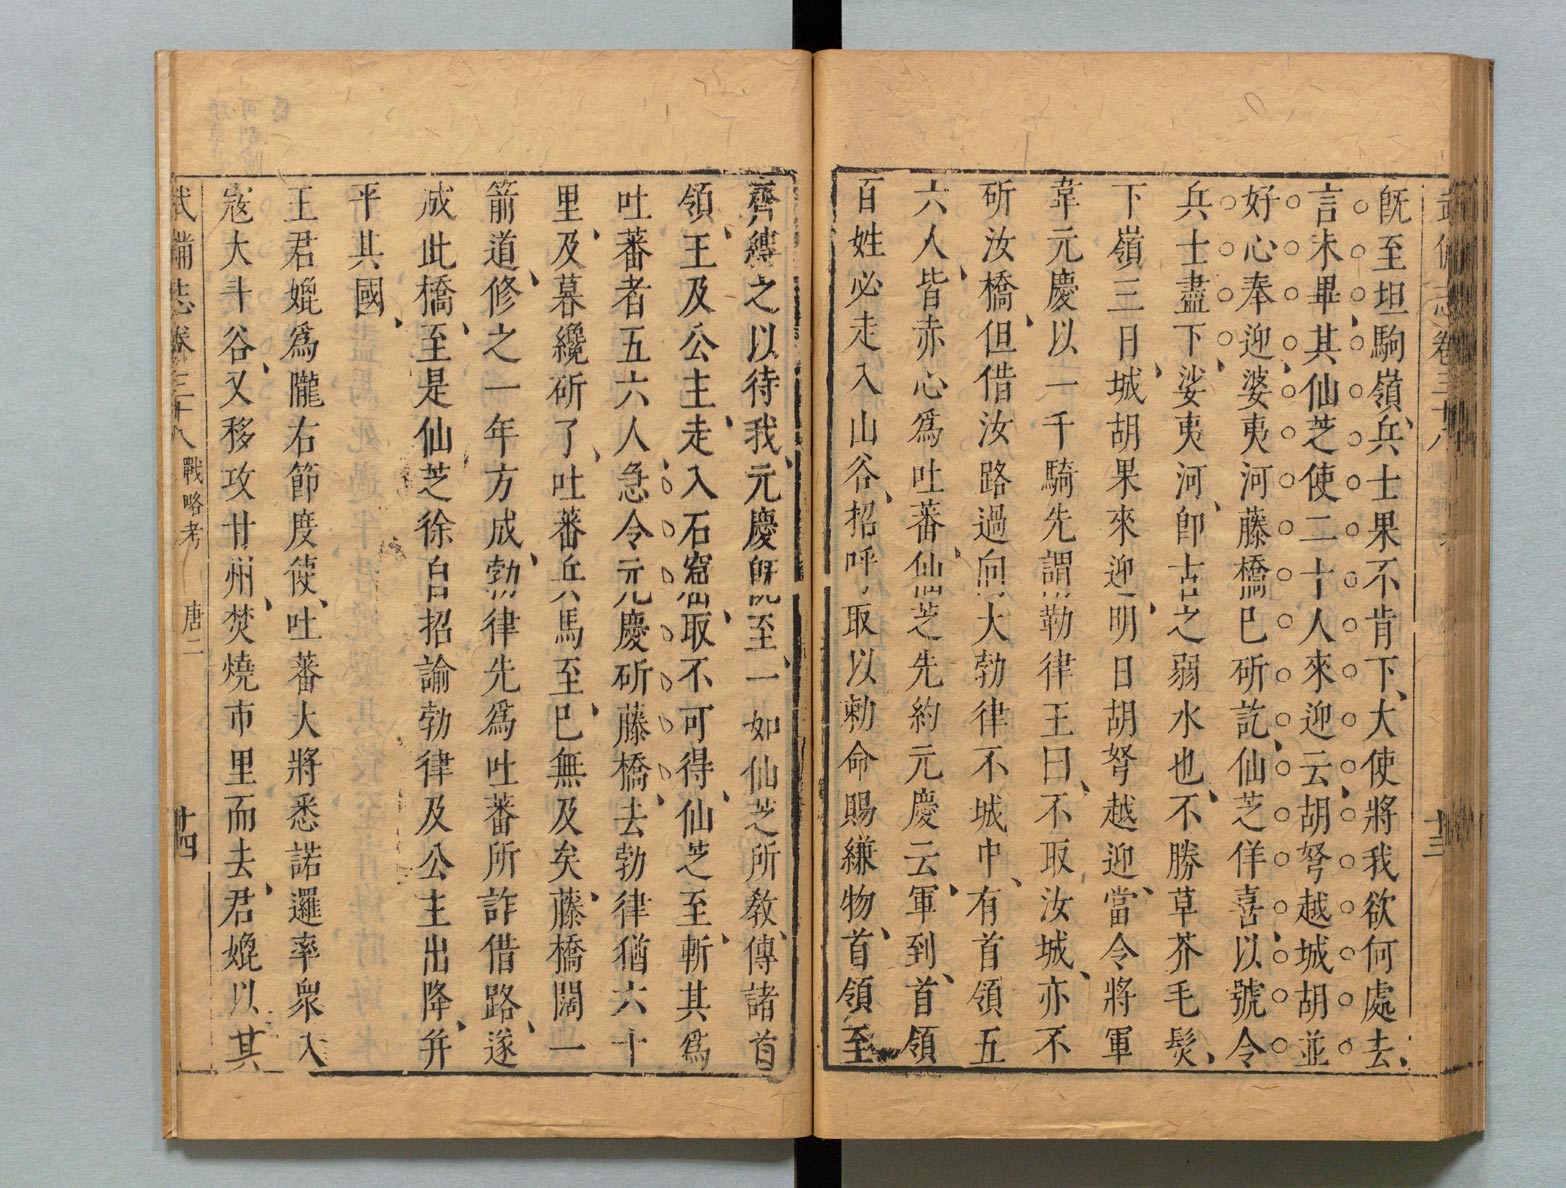 武備志卷三十八
十三
旣至坦駒嶺、兵士果不肯下、大使將我欲何處去、
言未畢、其仙芝使二十人來迎云、胡弩越城胡並
好心奉迎、婆夷河藤橋巳斫訖、仙芝佯喜、以號令
兵士盡下、娑夷河、卽古之弱水也、不勝草芥毛髮、
下嶺三日、城胡果來迎、明日胡弩越迎、當令將軍
韋元慶以一千騎先謂勒律王曰、不取汝城、亦不
斫汝橋、但借汝路過向大勃律不城中、有首領五
六人、皆赤心爲吐蕃、仙芝先約元慶云、軍到、首領
百姓必走入山谷、招呼取以勅命賜縑物、首領至
齊縛之以待我、元慶旣至、一如仙芝所敎、傳諸首
領、王及公主、走入石窟、取不可得、仙芝至、斬其爲
吐蕃者五六人、急令元慶斫藤橋、去勃律猶六十
里、及暮纔斫了、吐蕃兵馬至、巳無及矣、藤橋闊一
箭道、修之一年方成、勃律先爲吐蕃所詐借路、遂
成此橋、至是仙芝徐自招諭勃律及公主出降、幷
平其國、
王君㚟爲隴右節度使、吐蕃大將悉諾邏率衆入
寇大斗谷、又移攻廿州、焚燒市里而去、君㚟以其
武備志卷三十八 戰略考 唐二
十四